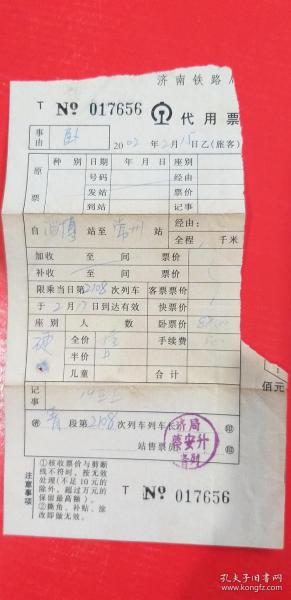 济南铁路局
T № 017656 代用票
事由 卧 2002年2月15日乙(旅客)
原票 种别 日期 年月日 座别
号码 经由
发站 票价
到站 记事
自 淄博 站至 常州 站 经由:
全程 千米
加收 至 间 票价
补收 至 间 票价
限乘当日第2108次列车 客票票价
于2月17日到达有效 快票价
座别 人数 卧票价
硬 全价 手续费
半价
儿童 合计
佰元
记事
青 段第2108次列车列车长 印
站售票员 印
济局
注意事项
①核收票价与剪断
线不符时,按无效
处理(不足10元的
除外,超过万元的
保留最高额)。
②撕角、补贴、涂
改即做无效。
T № 017656
孔夫子旧书网